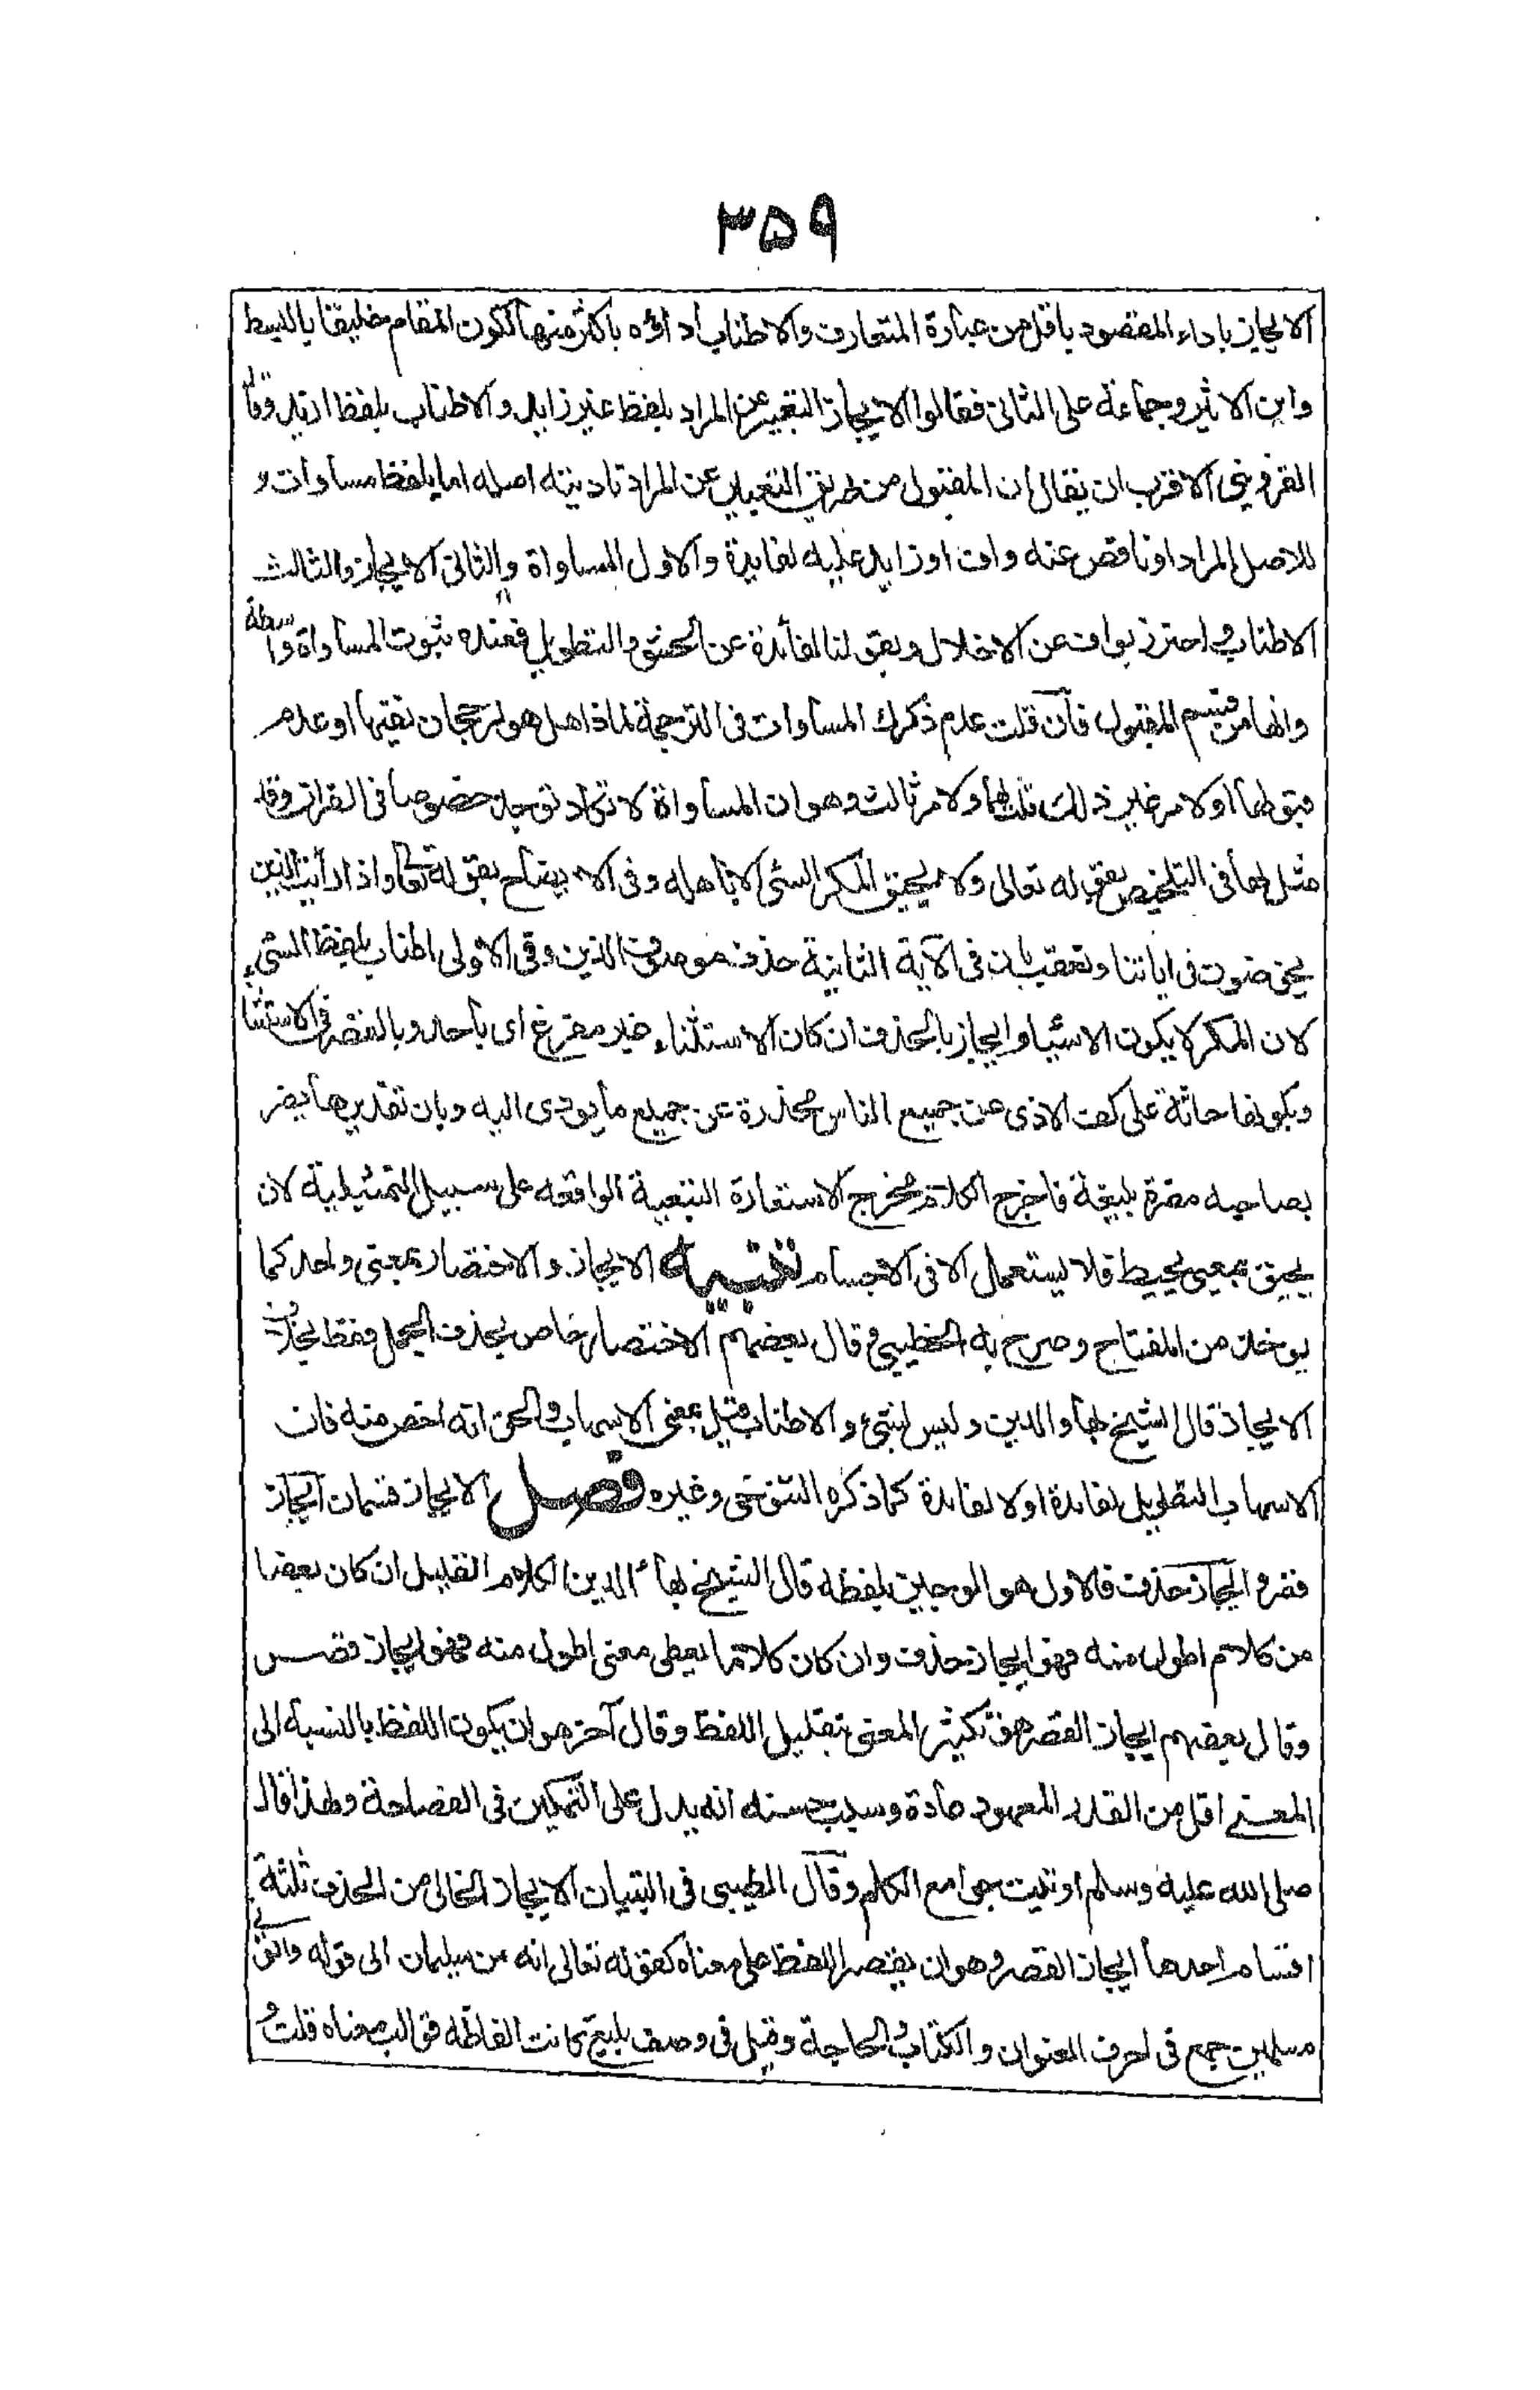 ۳۵۹
الايجاز باداء المقصود باقل من عبارة المتعارف والاطناب اداؤه باكثر منها لكون المقام خليقا بالبسط
وابن الاثير وجماعة على الثانى فقالوا الايجاز التعبير عن المراد بلفظ غير زايد والاطناب بلفظ ازيد وقال
القزوينى الاقرب ان يقال ان المقبول من طريق التعبير عن المراد تادية اصله اما بلفظ مساوات و
للاصل المراد او ناقص عنه واف او زايد عليه لفايدة والاول المساواة والثانى الايجاز والثالث
الاطناب واحترز بواف عن الاخلال وبقولنا لفائدة عن الحشو والتطويل فعنده ثبوت المساواة واسطة
وانها من قسم المقبول فان قلت عدم ذكرك المساوات فى الترجمة لماذا هل هو لرجحان نفيها او عدم
قبولها او لامر غير ذلك قلت لهما ولامر ثالث وهو ان المساواة لا تكاد توجد خصوصا فى القران وقد
مثل لها فى التلخيص بقوله تعالى ولا يحيق المكر السئ الا باهله وفى الايضاح بقوله تعالى واذا رايت الذين
يخوضون فى اياتنا وتعقب بان فى الآية الثانية حذف موصوف الذين وفى الاولى اطناب بلفظ السئ
لان المكر لا يكون الا سيئا وايجاز بالحذف ان كان الاستثناء غير مفرغ اى باحد وبالقصر فى الاستثنا
وبكونها حاثة على كف الاذى عن جميع الناس محذرة عن جميع ما يودى اليه وبان تقديرها يضر
بصاحبه مضرة بليغة فاخرج الكلام مخرج الاستعارة التبعية الواقعه على سبيل التمثيلية لان
يحيق بمعنى يحيط فلا يستعمل الا فى الاجسام تنبيه الايجاز والاختصار بمعنى واحد كما
يوخذ من المفتاح وصرح به الطيبى وقال بعضهم الاختصار خاص بحذف الجمل فقط بخلاف
الايجاز قال الشيخ بهاو الدين وليس بشئ والاطناب قيل بمعنى الاسهاب والحق انه اخص منه فان
الاسهاب التطويل لفائدة او لا لفائدة كما ذكره التنوخى وغيره فصل الايجاز قسمان ايجاز
قصر وايجاز حذف فالاول هو الوجيز بلفظه قال الشيخ بهاء الدين الكلام القليل ان كان بعضا
من كلام اطول منه فهو ايجاز حذف وان كان كلاما يعطى معنى اطول منه فهو ايجاز قصر
وقال بعضهم ايجاز القصر هو تكثير المعنى بتقليل اللفظ وقال آخر هو ان يكون اللفظ بالنسبة الى
المعنى اقل من القدر المعهود عادة وسبب حسنه انه يدل على التمكين فى الفصاحة ولهذا قال
صلى الله عليه وسلم اوتيت جوامع الكلم وقال الطيبى فى التبيان الايجاز الخالى من الحذف ثلثة
اقسام احدها ايجاز القصر وهو ان يقتصر اللفظ على معناه كقوله تعالى انه من سليمان الى قوله واتونى
مسلمين جمع فى احرف العنوان والكتاب والحاجة وقيل فى وصف بليغ كانت الفاظه قوالب معناه قلت و